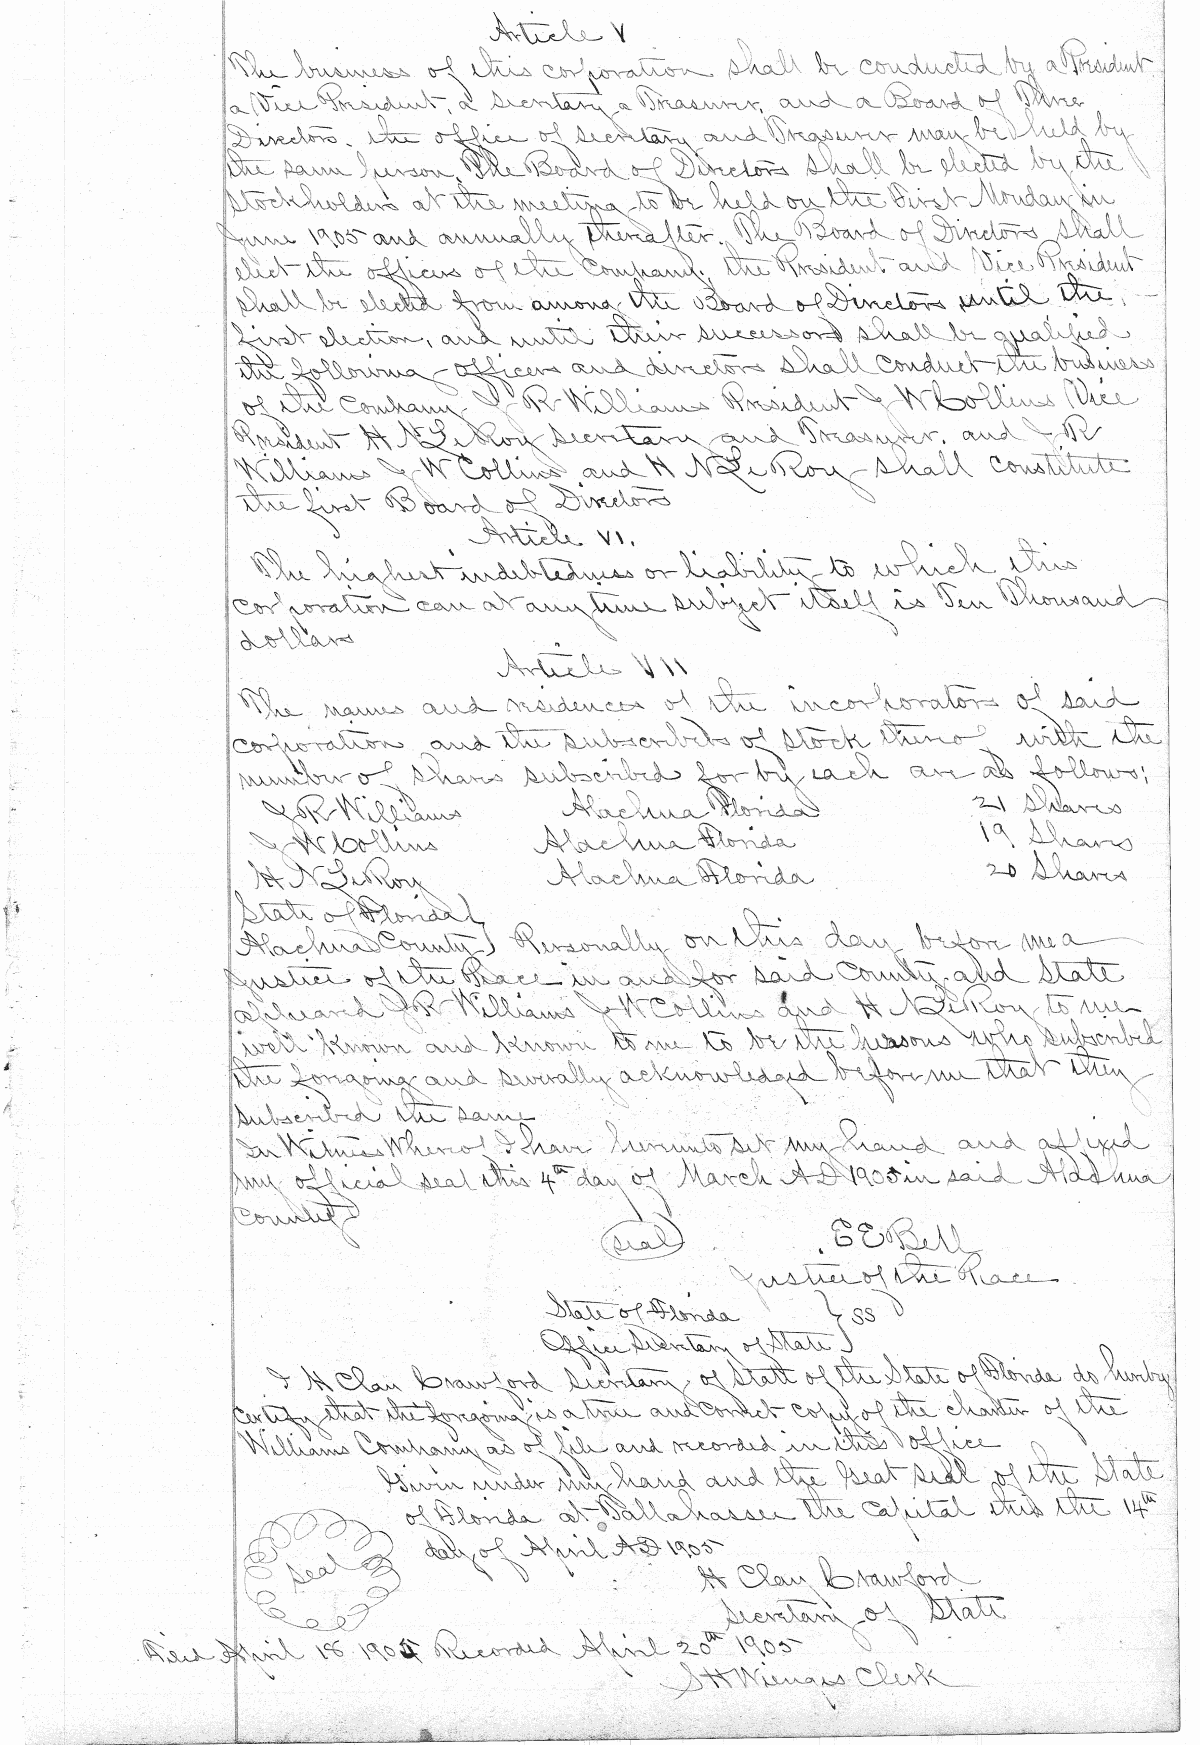 Article V
The business of this corporation shall be conducted by a President
a Vice President, a Secretary a Treasurer, and a Board of Three
Directors. the office of Secretary and Treasurer may be held by
the same person. The Board of Directors shall be elected by the
Stockholders at the meeting to be held on the First Monday in
June 1905 and annually thereafter. The Board of Directors shall
elect the officers of the Company. the President and Vice President
shall be elected from among the Board of Directors until the
first election, and until their successors shall be qualified
the following officers and directors shall conduct the business
of the Company J R Williams President J W Collins Vice
President H N LeRoy Secretary and Treasurer. and J R
Williams J W Collins and H N LeRoy shall constitute
the first Board of Directors
Article VI.
The highest indebtedness or liability to which this
corporation can at any time subject itself is Ten Thousand
dollars
Article VII
The names and residences of the incorporators of said
corporation and the subscribers of stock thereof with the
number of shares subscribed for by each are as follows;
J R Williams Alachua Florida 21 Shares
J W Collins Alachua Florida 19 Shares
H N LeRoy Alachua Florida 20 Shares
State of Florida }
Alachua County } Personally on this day before me a
Justice of the Peace in and for said County and State
appeared J R Williams J W Collins and H N LeRoy to me
well known and known to me to be the persons who subscribed
the foregoing and severally acknowledged before me that they
subscribed the same
In Witness Whereof I have hereunto set my hand and affixed
my official seal this 4th day of March A D 1905 in said Alachua
County
(Seal) E E Bell
Justice of the Peace
State of Florida } SS
Office Secretary of State }
I H Clay Crawford Secretary of State of the State of Florida do hereby
certify that the foregoing is a true and correct copy of the charter of the
Williams Company as of file and recorded in this office
Given under my hand and the Geat seal of the State
of Florida at Tallahassee the Capital this the 14th
day of April A D 1905
Seal
H Clay Crawford
Secretary of State
Filed April 18 1905 Recorded April 20th 1905
S H Wienges Clerk